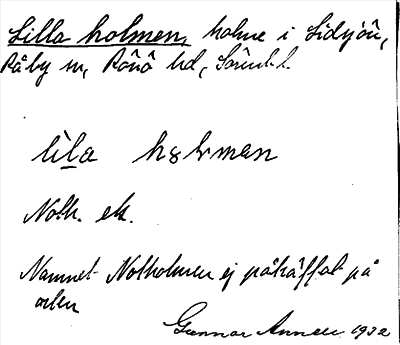 Lilla holmen, holme i Lidsjön,
Råby sn, Rönö hd, Söderml.
lìla hɷlmen
Noth. ek.
Namnet Notholmen ej påträffat på
orten
Gunnar Annell 1932